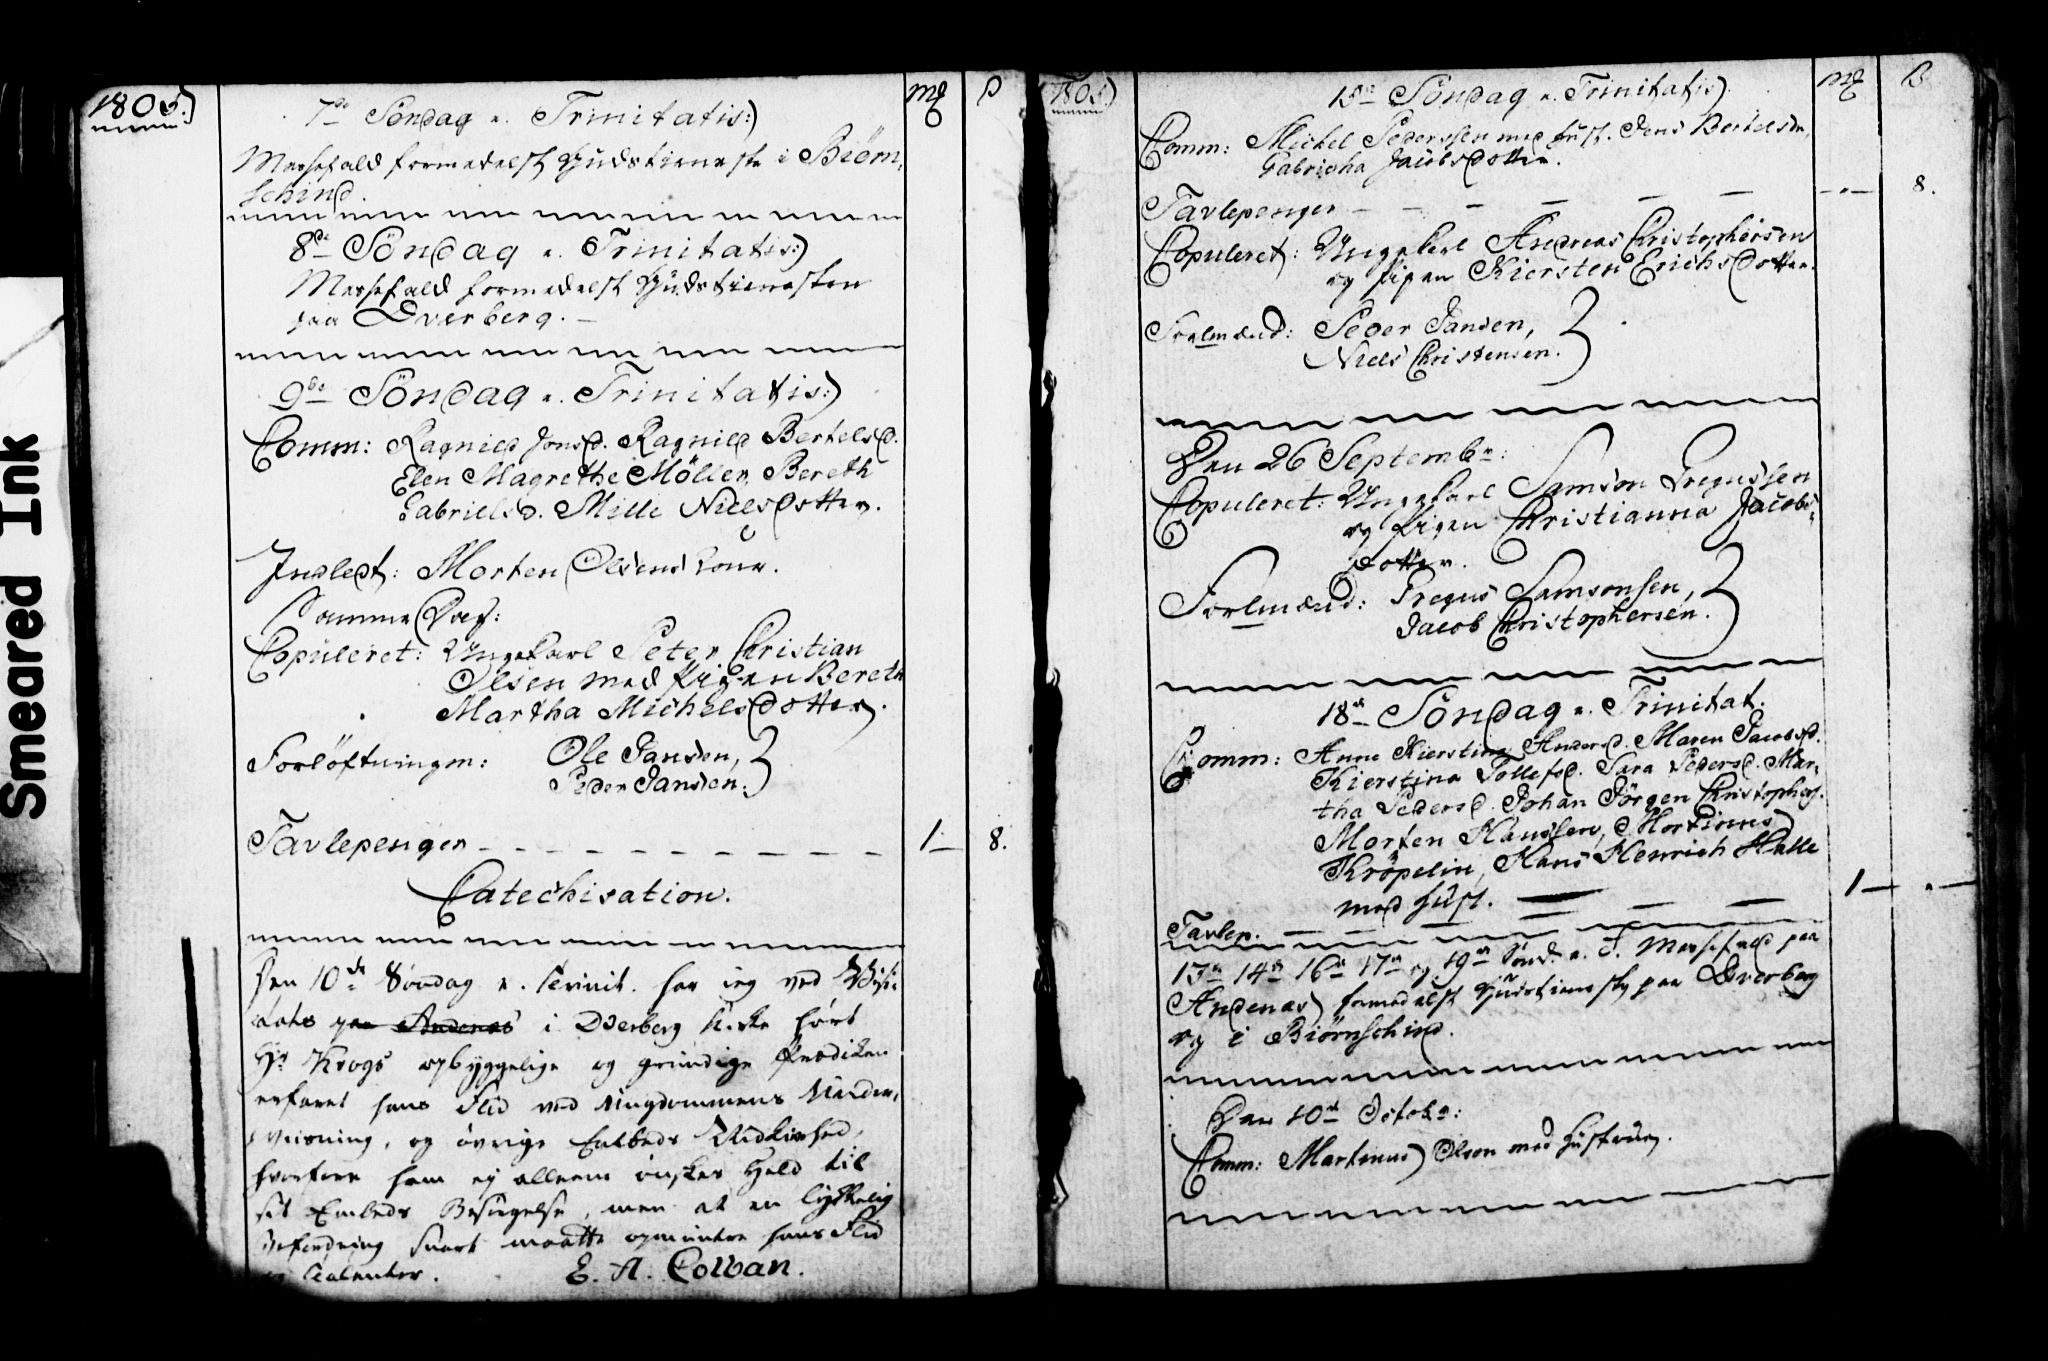 Smeared Ink
1805.)
mƶ
ß
7de Söndag e. Trinitatis:)
Messefald formedelst Gudstieneste i Biörn,
schind.
8de Söndag e. Trinitatis:)
Messefald formedelst Gudstienesten
paa Dverberg. —
9de Söndag e. Trinitatis:)
Comm: Ragnild Jonsd. Ragnild Bertelsd.
Elen Magrethe Möller, Bereth
Gabrielsd. Mille Nielsdotter.
Indledt: Morten Olsens Kone.
Samme Dag:
Copuleret: Ungekarl Peter Christian
Olsen med Pigen Bereth
Martha Michelsdotter.
Forlöftningm: Ole Jansen,
Peder Jansen.
Tavlepenger — 1— 8.
Catechisation.
Den 10de Söndag e. Trinit. har ieg ved Visi-
tats paa Andenæs i Dverberg Kirke hørt
Hr Krogs opbyggelige og grundige Prædiken
erfaret hans Flid ved Ungdommens Underv
viisning, og øvrige Embeds Nidkierhed,
hvorfore ham ej alleene ønskes Held til
sit Embeds , men at en lykkelig
Befordring snart maatte opmuntre hans Flid
og Talenter. E. A. Colban.
1805)
mƶ
ß
15de Söndag e. Trinitatis)
Comm: Michel Pederssen med Hust. Jens Bertelsen,
Gabricha Jacobsdotter.
Tavlepenger — 8.
Copuleret: Ungekarl Andreas Christophersen
og Pigen Kiersten Erichsdotter.
Forlmænd: Peder Jansen,
Niels Christensen.
Den 26 Septembr:
Copuleret: Ungekarl Samson Pregussen
og Pigen Christianna Jacobs-
dotter.
Forlmænd: Pregus Samsonsen,
Jacob Christophersen.
18de Söndag e. Trinitat.
Comm: Anne Kierstina Andersd. Maren Jacobsd.
Kierstina Tollefsd. Sara Pedersd. Mar-
tha Pedersd. Johan Jörgen Christophers.
Morten Hanssen, Mortinus
Kröpelin, Hans Henrich Halle
med Hust.
Tavlep. — 1 —
13de 14de 16de 17de og 19de Sønd. e. T. Messefald paa
Andenæs formedelst Gudstieneste paa Dverberg
og i Biörnschind.
Den 10de Octobr:
Comm: Martinus Olson med Hustrue.